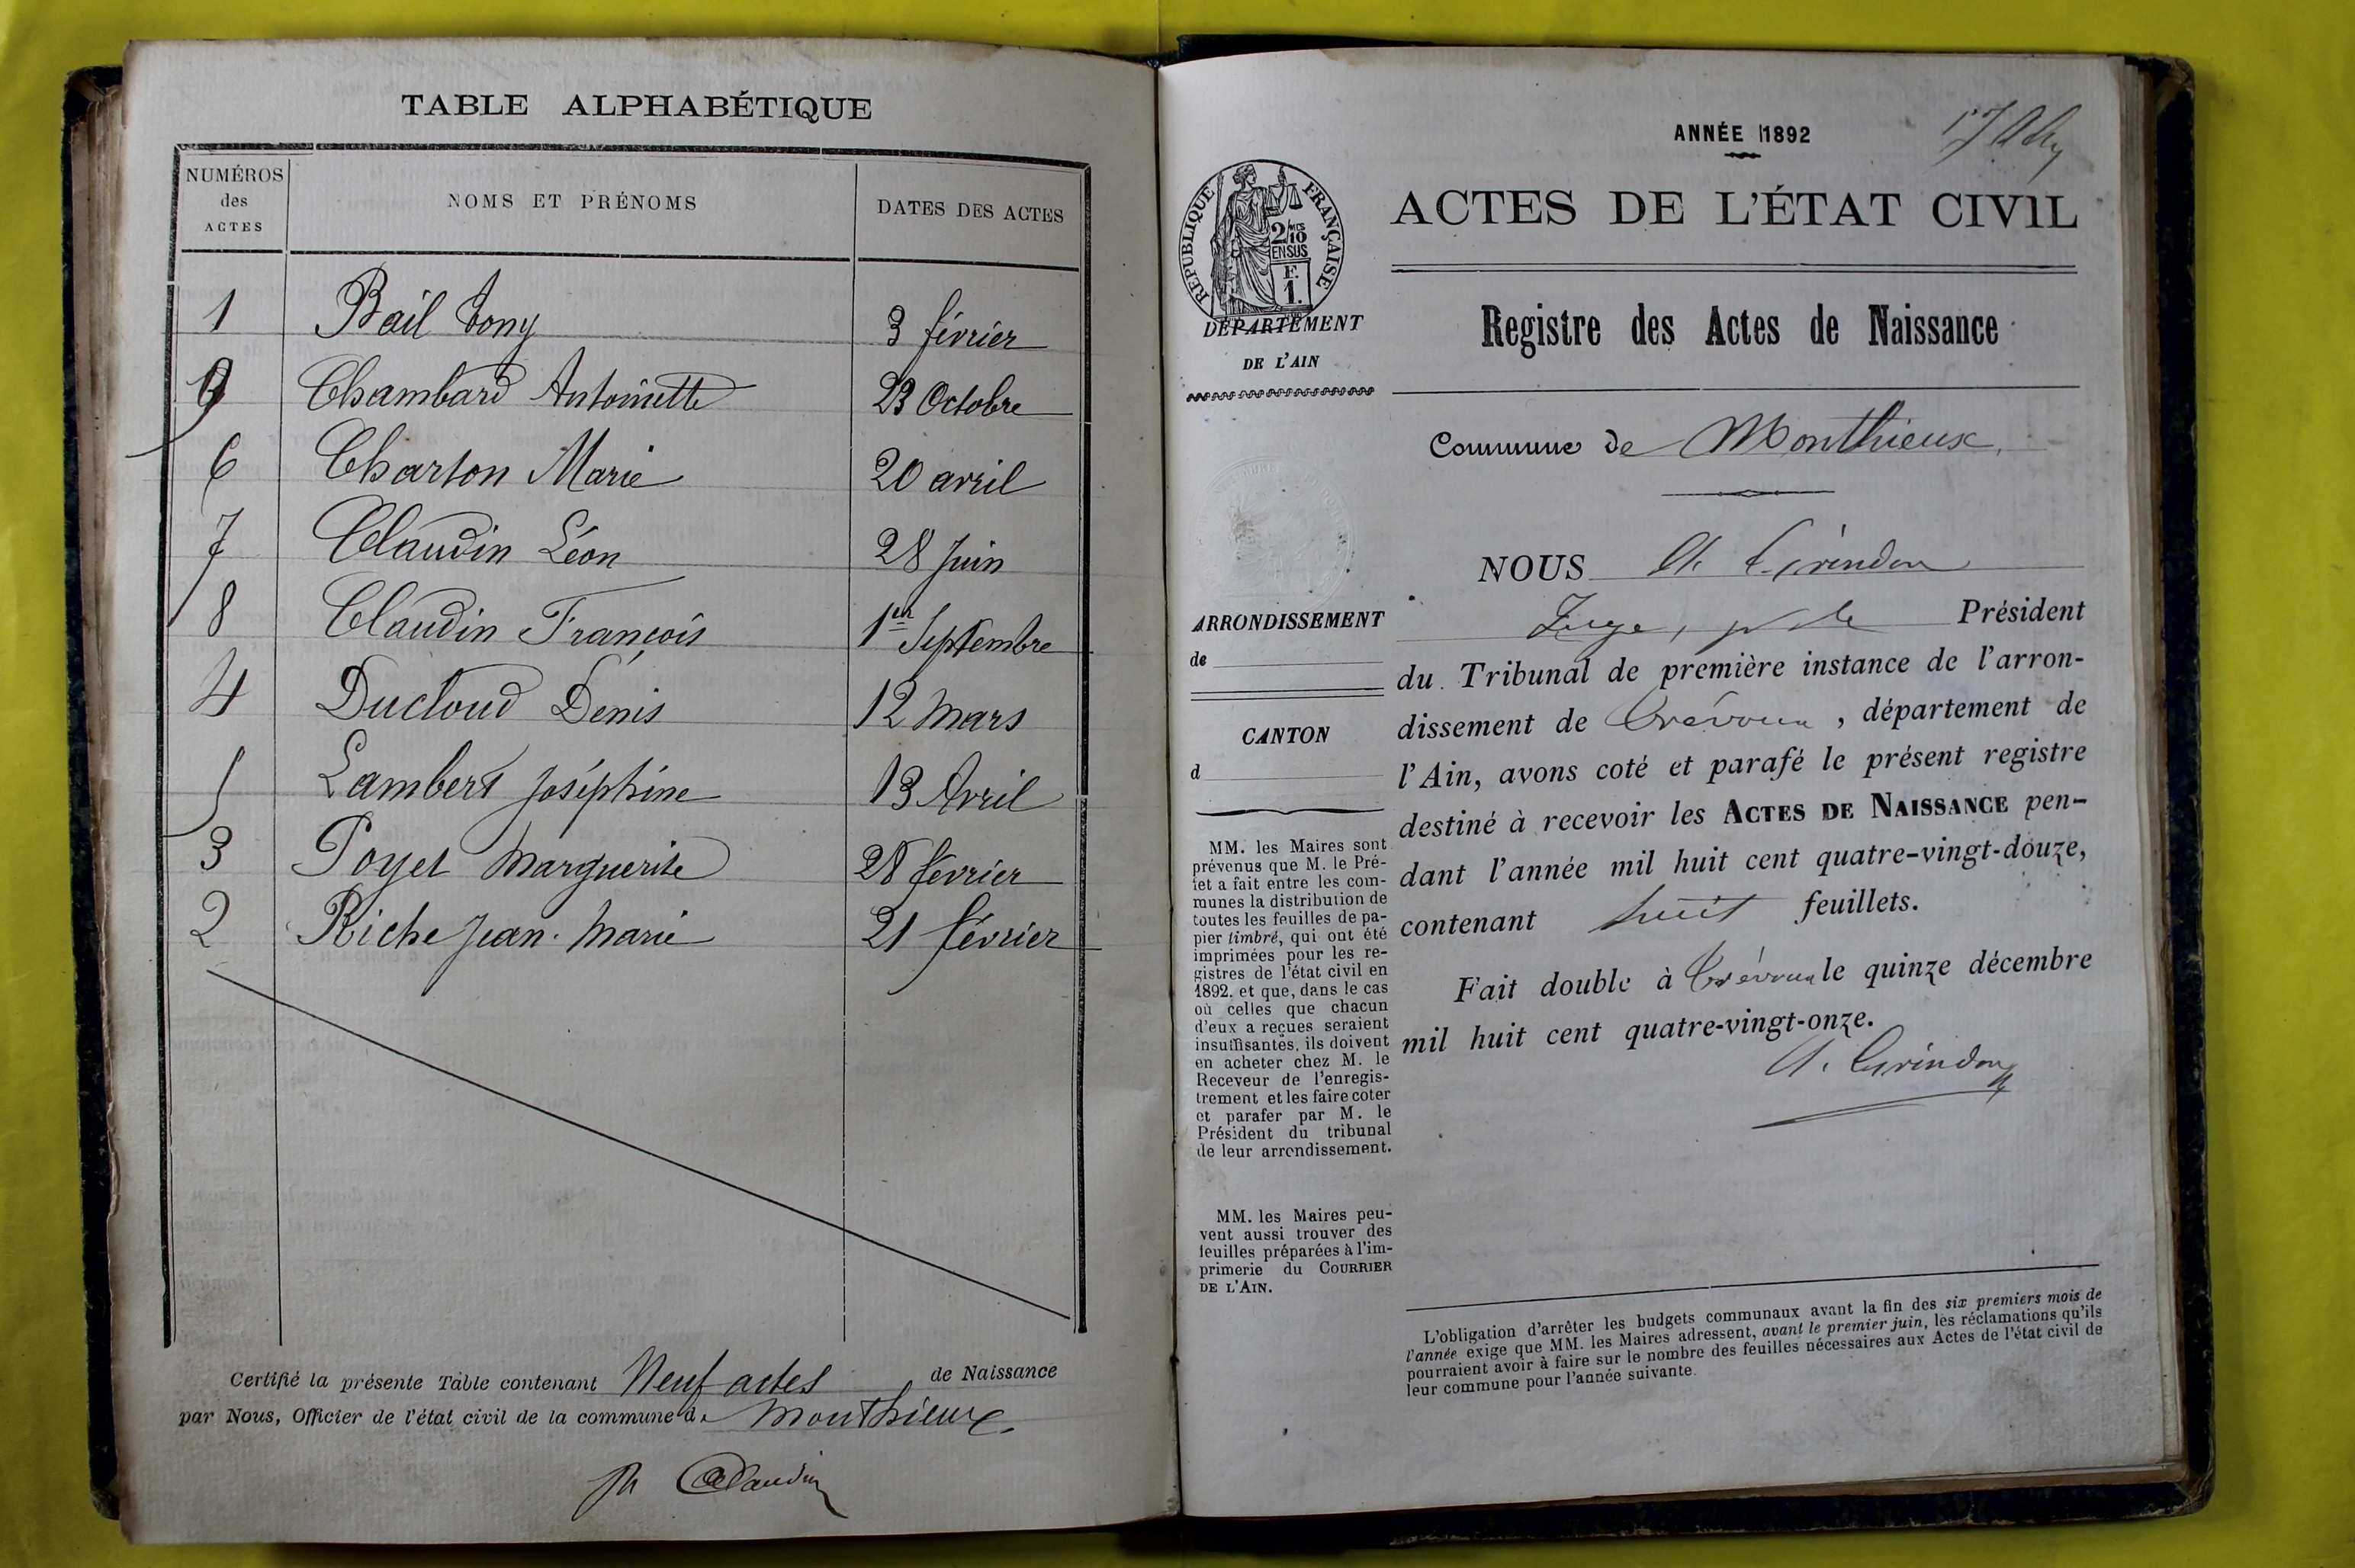 TABLE ALPHABÉTIQUE
NUMÉROS des ACTES
NOMS ET PRÉNOMS
DATES DES ACTES
1 Bail Tony 3 février
9 Chambard Antoinette 23 Octobre
6 Charton Marie 20 avril
7 Claudin Léon 28 Juin
8 Claudin François 1er Septembre
4 Ducloud Denis 12 Mars
5 Lambert Joséphine 13 Avril
3 Poyet Marguerite 28 février
2 Riche Jean-Marie 21 février
Certifié la présente Table contenant Neuf actes de Naissance
par Nous, Officier de l'état civil de la commune d. Monthieux.
Claudin
ANNÉE 1892
RÉPUBLIQUE FRANÇAISE
2/10
EN SUS
F.
1.
ACTES DE L'ÉTAT CIVIL
DÉPARTEMENT
DE L'AIN
Registre des Actes de Naissance
Commune de Monthieux.
ARRONDISSEMENT
de
CANTON
d
MM. les Maires sont
prévenus que M. le Pré-
fet a fait entre les com-
munes la distribution de
toutes les feuilles de pa-
pier timbré, qui ont été
imprimées pour les re-
gistres de l'état civil en
1892. et que, dans le cas
où celles que chacun
d'eux a reçues seraient
insuffisantes, ils doivent
en acheter chez M. le
Receveur de l'enregis-
trement et les faire coter
et parafer par M. le
Président du tribunal
de leur arrondissement.
MM. les Maires peu-
vent aussi trouver des
feuilles préparées à l'im-
primerie du COURRIER
DE L'AIN.
NOUS A. Grindon
Juge, Président
du Tribunal de première instance de l'arron-
dissement de Trévoux, département de
l'Ain, avons coté et parafé le présent registre
destiné à recevoir les ACTES DE NAISSANCE pen-
dant l'année mil huit cent quatre-vingt-douze,
contenant huit feuillets.
Fait double à Trévoux le quinze décembre
mil huit cent quatre-vingt-onze.
A. Grindon
L'obligation d'arrêter les budgets communaux avant la fin des six premiers mois de
l'année exige que MM. les Maires adressent, avant le premier juin, les réclamations qu'ils
pourraient avoir à faire sur le nombre des feuilles nécessaires aux Actes de l'état civil de
leur commune pour l'année suivante.